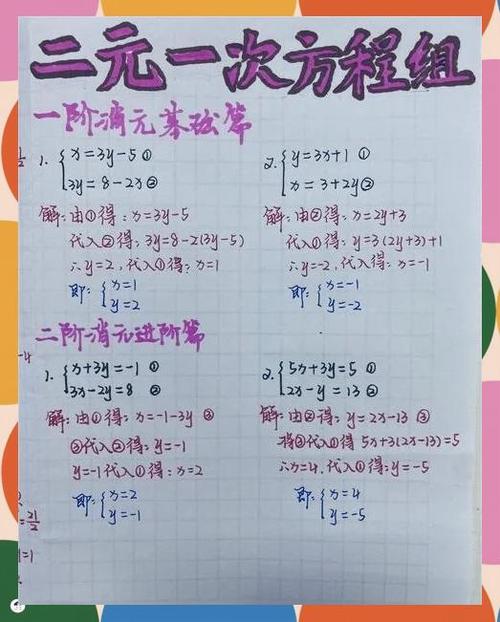 二元一次方程组
一阶消元基础篇
1. {x=3y-5 ①
3y=8-2x②
解:由①得:x=3y-5
代入②得:3y=8-2(3y-5)
∴y=2,代入①得:x=1
即:{x=1
y=2
2. {y=3x+1 ①
x=3+2y②
解:由②得:x=2y+3
代入①得:y=3(2y+3)+1
∴y=-2,代入得:x=-1
即:{x=-1
y=-2
二阶消元进阶篇
1. {x+3y=-1 ①
3x-2y=8 ②
解:由①得:x=-1-3y ③
③代入②得:y=-1
y=-1代入①得:x=2
即:{x=2
y=-1
2. {5x+3y=5 ①
2x-y=13 ②
解:由②得:y=2x-13 ③
将③代入①得 5x+3(2x-13)=5
∴x=4,代入①得:y=-5
即:{x=4
y=-5
-4
=21/2
=1